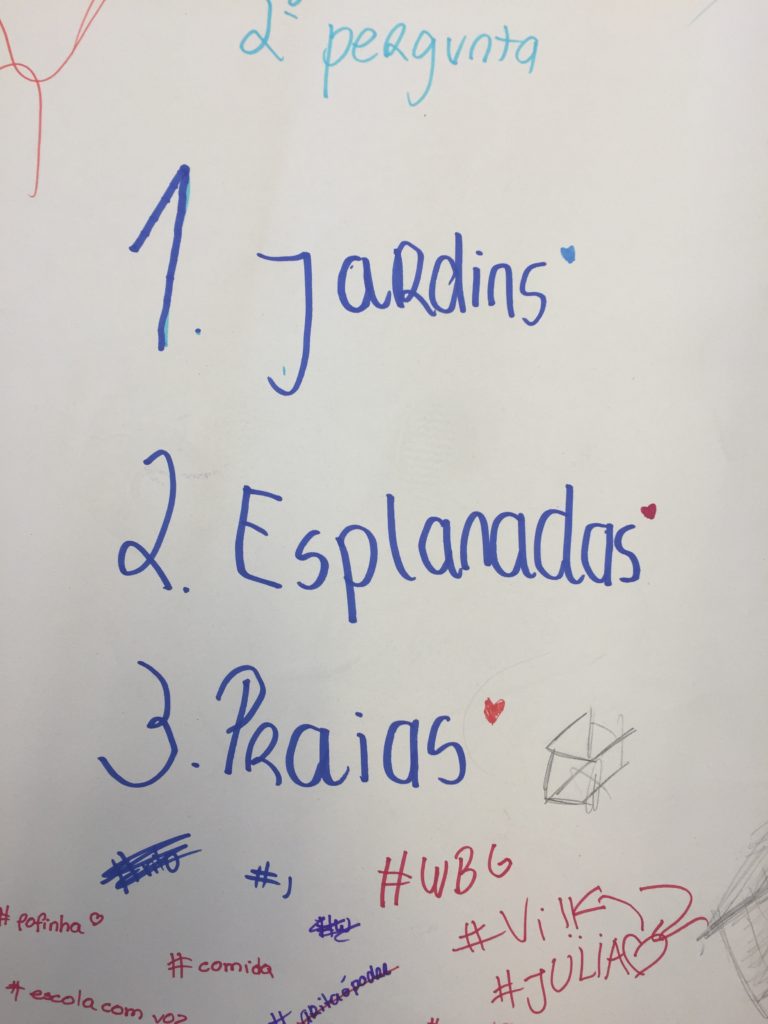 2ª pergunta
1. Jardins
2. Esplanadas
3. Praias
#,
#WBG
#pofinha
#Vilk
#comida
#JÜLIA
#escola com voz